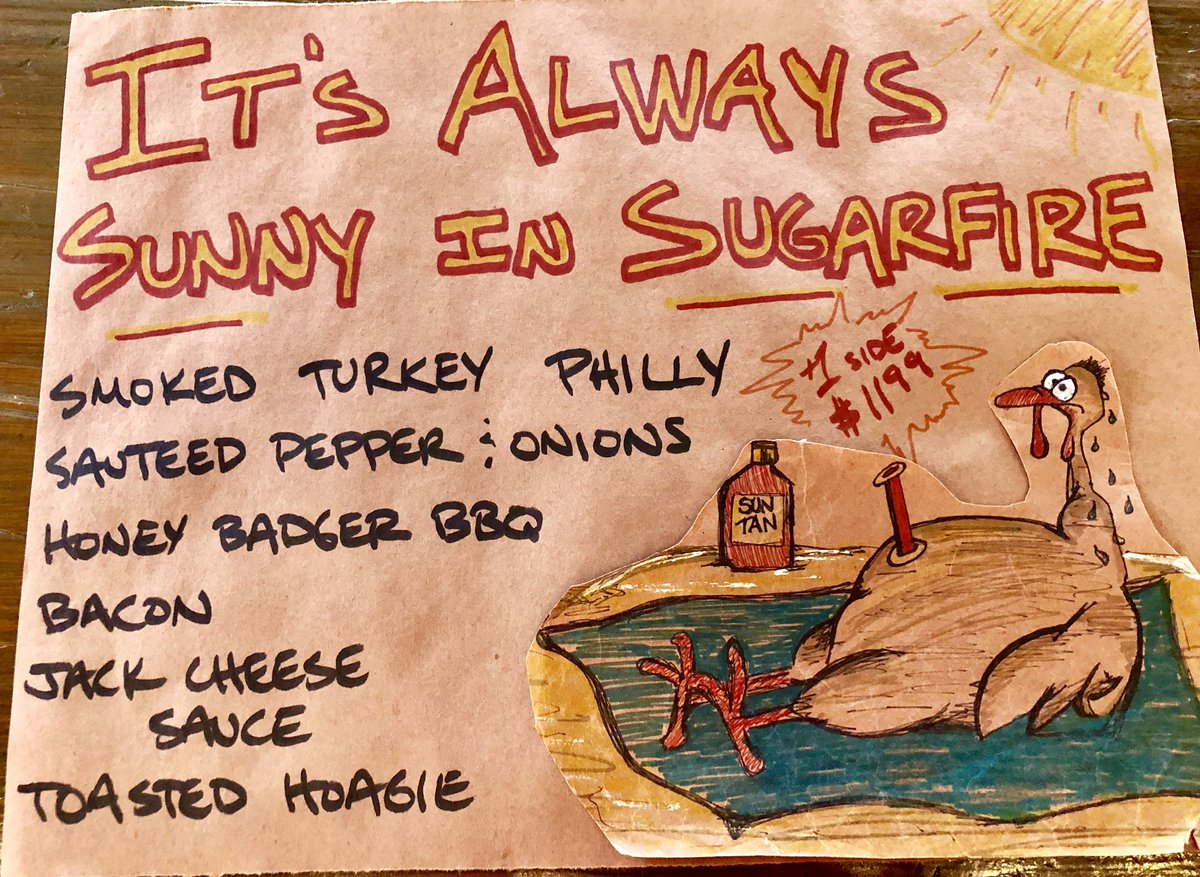 IT'S ALWAYS
SUNNY IN SUGARFIRE
SMOKED TURKEY PHILLY
SAUTEED PEPPER & ONIONS
HONEY BADGER BBQ
BACON
JACK CHEESE
SAUCE
TOASTED HOAGIE
+1 SIDE
$1199
SUN
TAN